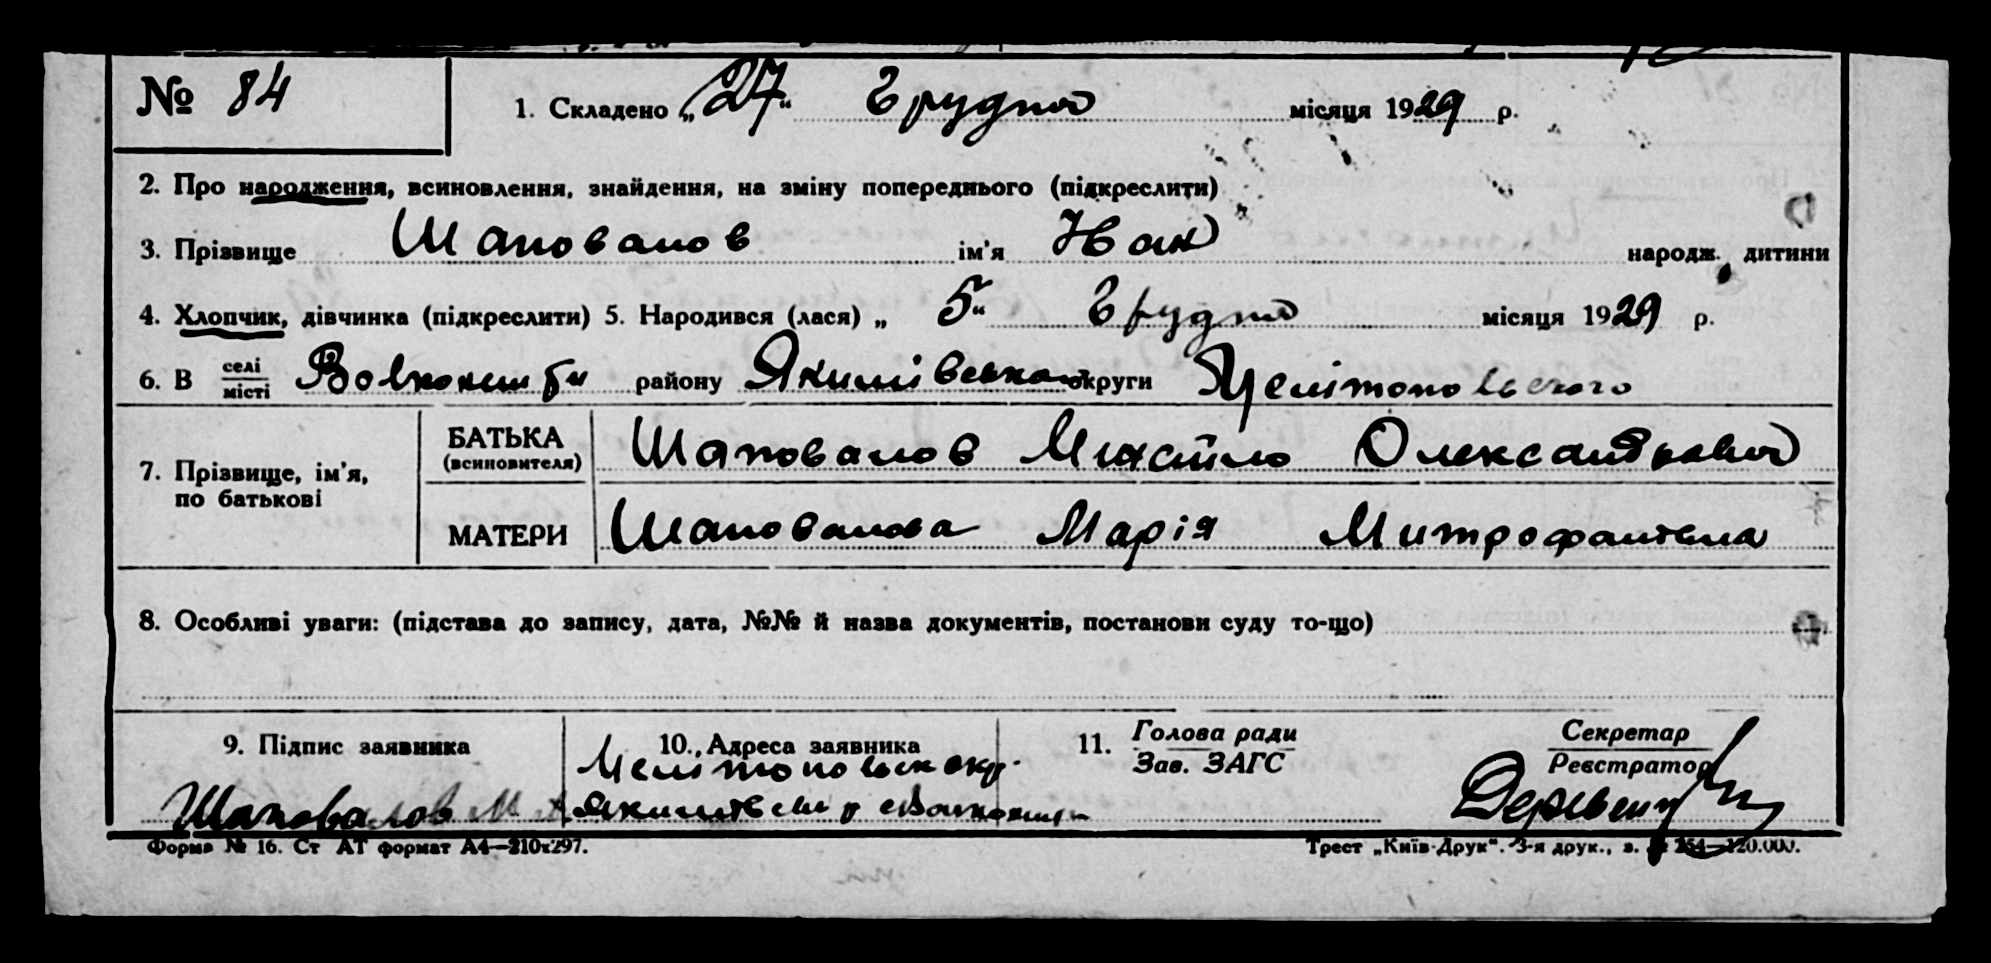 № 84
1. Складено „27“ Грудня місяця 1929 р.
2. Про народження, всиновлення, знайдення, на зміну попереднього (підкреслити)
3. Прізвище Шаповалов ім'я Іван народж. дитини
4. Хлопчик, дівчинка (підкреслити) 5. Народився (лася) „5“ Грудня місяця 1929 р.
6. В селі/місті району Якимівського округи Мелітопольского
7. Прізвище, ім'я, по батькові
БАТЬКА (всиновителя) Шаповалов Михайло Олександрович
МАТЕРИ Шаповалова Марія Митрофановна
8. Особливі уваги: (підстава до запису, дата, №№ й назва документів, постанови суду то-що)
9. Підпис заявника
Шаповалов М А
10. Адреса заявника
Мелітопольск окр.
11. Голова ради
Зав. ЗАГС
Секретар
Реєстратор
Форма № 16. Ст АТ формат А4—210х297.
Трест „Київ-Друк“. 3-я друк., з. № 254—120.000.